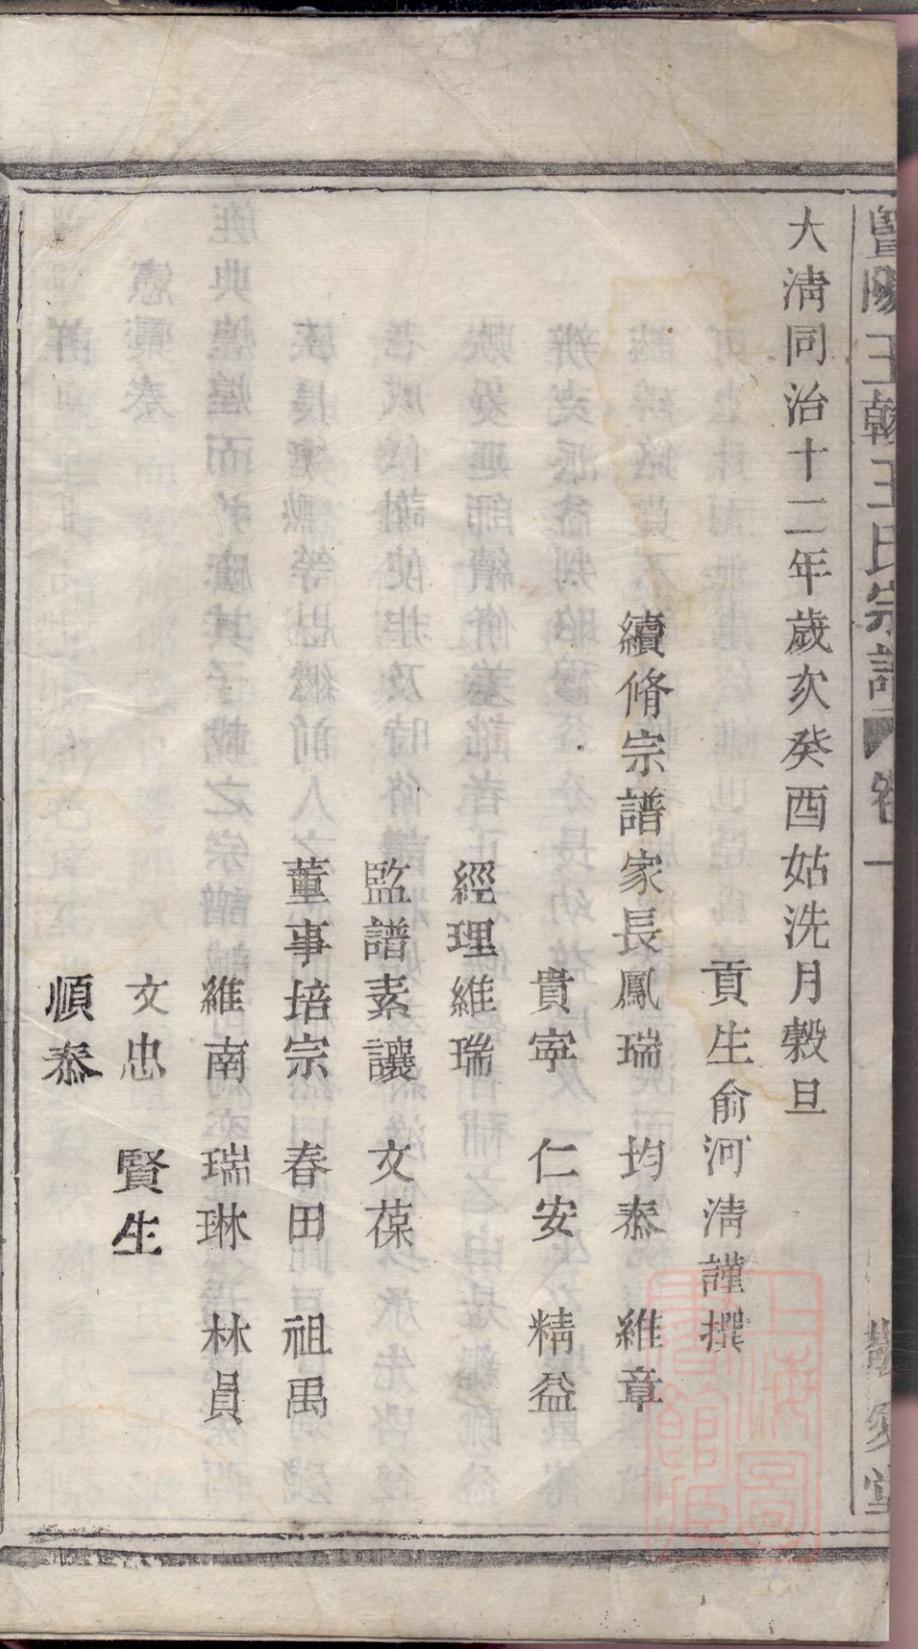 暨陽王韓王氏宗譜 卷一
大淸同治十二年歲次癸酉姑洗月穀旦
貢生俞河淸謹撰
續脩宗譜家長鳳瑞 均泰 維章
貴寜 仁安 精益
經理維瑞
監譜素讓 文葆
董事培宗 春田 祖禹
維南 瑞琳 林員
文忠 賢生
順泰
上海圖書館藏